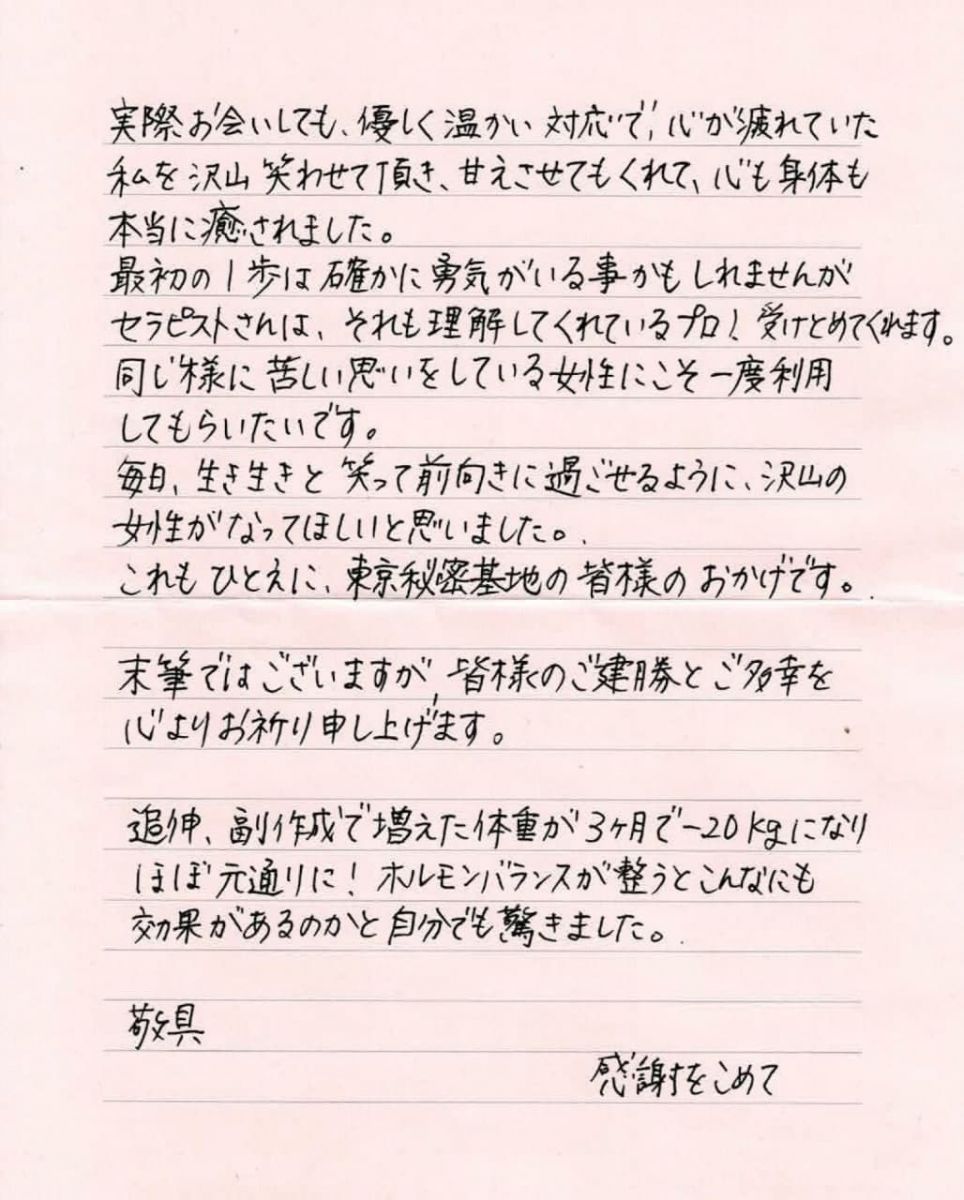 実際お会いしても、優しく温かい対応で、心が疲れていた
私を沢山笑わせて頂き、甘えさせてもくれて、心も身体も
本当に癒されました。
最初の1歩は確かに勇気がいる事かもしれませんが
セラピストさんは、それも理解してくれているプロ!受けとめてくれます。
同じ様に苦しい思いをしている女性にこそ一度利用
してもらいたいです。
毎日、生き生きと笑って前向きに過ごせるように、沢山の
女性がなってほしいと思いました。
これもひとえに、東京秘密基地の皆様のおかげです。
末筆ではございますが、皆様のご建勝とご多幸を
心よりお祈り申し上げます。
追伸、副作成で増えた体重が3ヶ月で-20kgになり
ほぼ元通りに!ホルモンバランスが整うとこんなにも
効果があるのかと自分でも驚きました。
敬具
感謝をこめて